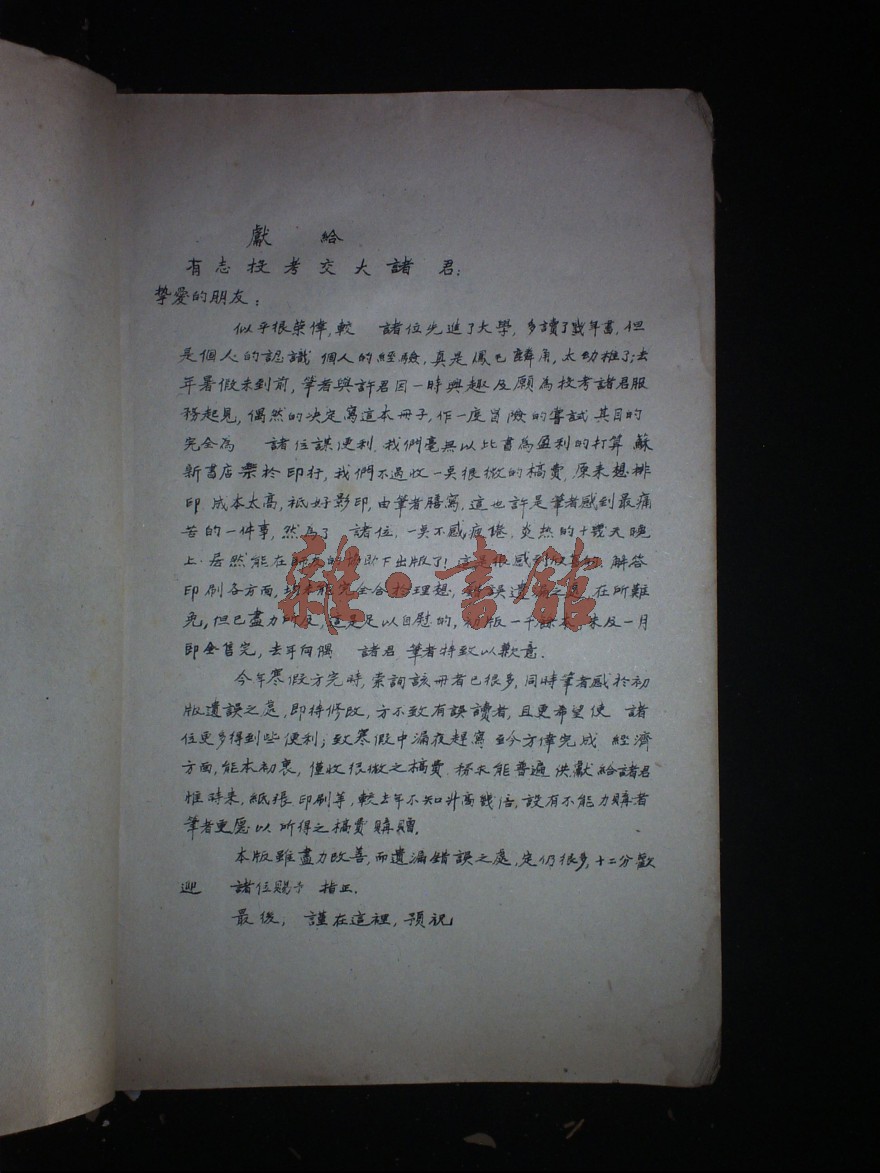 獻 給
有志投考交大諸君：
摯愛的朋友：
似乎很榮偉，較 諸位先進了大學，多讀了幾年書，但
是個人的認識 個人的經驗，真是鳳毛麟角，太幼稚了；去
年暑假未到前，筆者與許君因一時興趣及願為投考諸君服
務起見，偶然的決定寫這本冊子，作一度冒險的嘗試 其目的
完全為 諸位謀便利，我們毫無以此書為盈利的打算 蘇
新書店樂於印行，我們不過收一點很微的稿費，原來想排
印 成本太高，祇好影印，由筆者謄寫，這也許是筆者感到最痛
苦的一件事，然為了 諸位，一點不感疲倦，炎熱的十幾天晚
上 居然能在師友的協助下出版了！這是很感到 解答
印刷各方面，均未能完全合於理想，錯誤遺漏之處，在所難
免，但已盡力所及，這是足以自慰的，初版一千餘本 未及一月
即全售完，去年向隅 諸君 筆者特致以歉意．
今年寒假方完時，索詢該冊者已很多，同時筆者感於初
版遺誤之處，即待修改，方不致有誤讀者，且更希望使 諸
位更多得到些便利；致寒假中漏夜趕寫 至今方偉完成 經濟
方面，能本初衷，僅收很微之稿費 務求能普遍供獻給諸君
惟時來，紙張印刷等，較去年不知升高幾倍，設有不能力購者
筆者更愿以所得之稿費購贈．
本版雖盡力改善，而遺漏錯誤之處，定仍很多，十二分歡
迎 諸位賜予 指正．
最後，謹在這裡，預祝
雜·書館